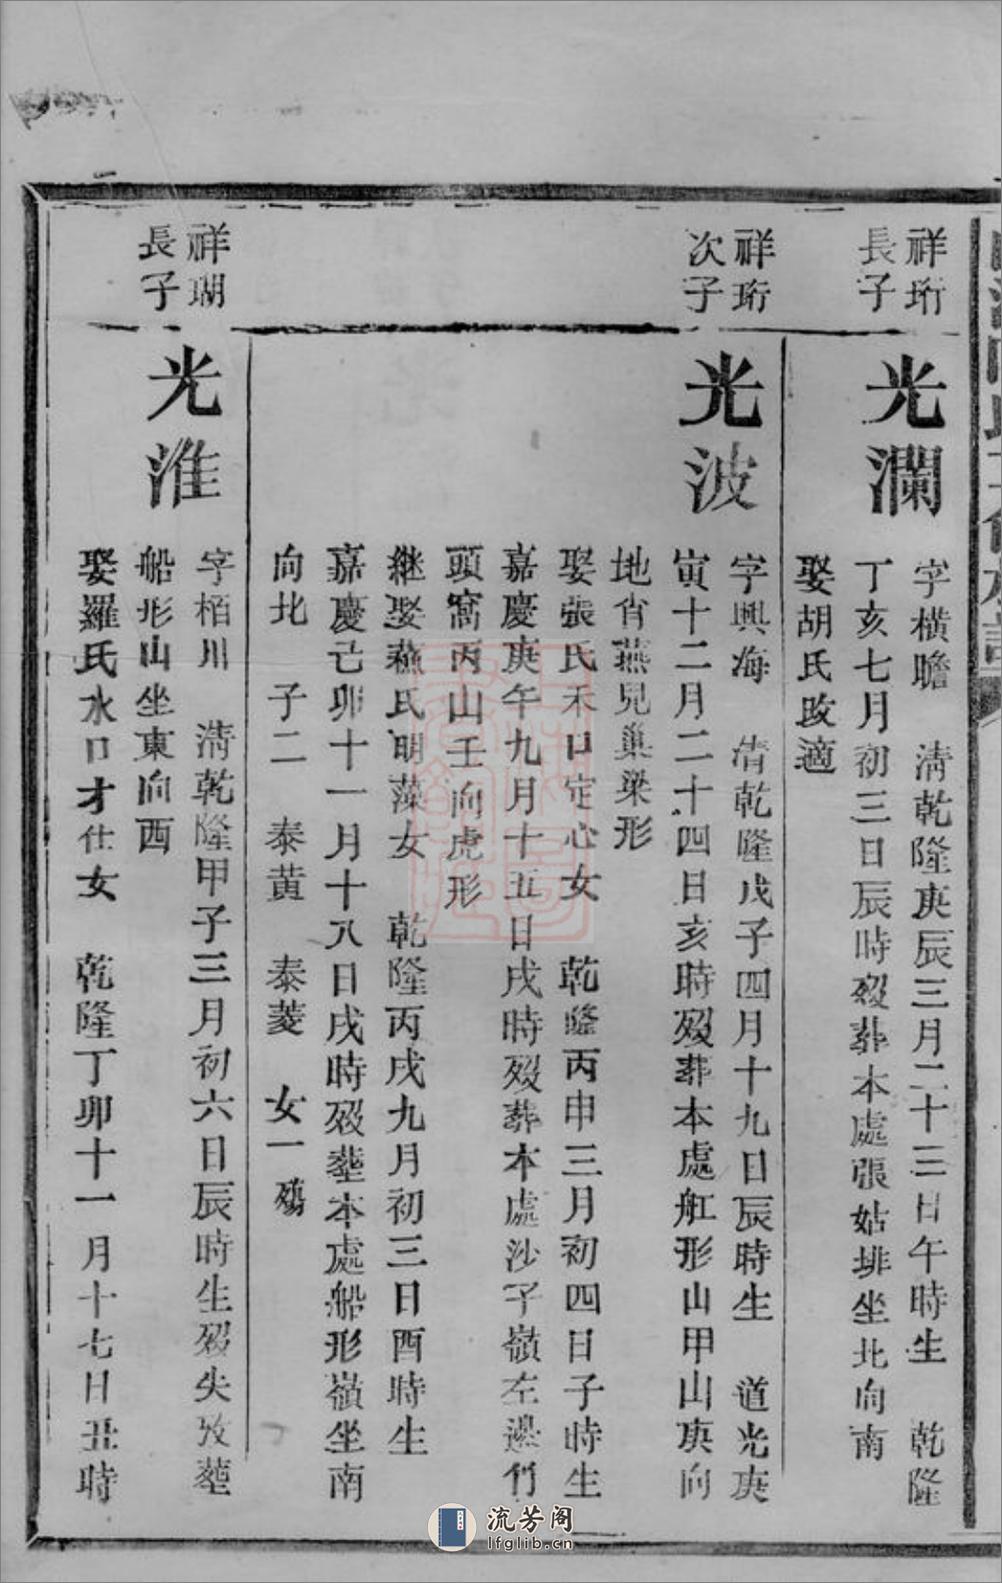 祥珩
長子
光瀾
字橫瞻　清乾隆庚辰三月二十三日午時生　乾隆
丁亥七月初三日辰時歿葬本處張姑排坐北向南
娶胡氏改適
祥珩
次子
光波
字興海　清乾隆戊子四月十九日辰時生　道光庚
寅十二月二十四日亥時歿葬本處舡形山甲山庚向
地肖燕兒巢梁形
娶張氏禾口定心女　乾隆丙申三月初四日子時生
嘉慶庚午九月十五日戌時歿葬本處沙子嶺左邊竹
頭窩丙山壬向虎形
継娶燕氏明藻女　乾隆丙戌九月初三日酉時生
嘉慶己卯十一月十八日戌時歿塟本處船形嶺坐南
向北　子二　泰黄　泰菱　女一殤
祥瑚
長子
光淮
字栢川　淸乾隆甲子三月初六日辰時生歿失攷塟
船形山坐東向西
娶羅氏水口才仕女　乾隆丁卯十一月十七日丑時
流芳阁
lfglib.cn